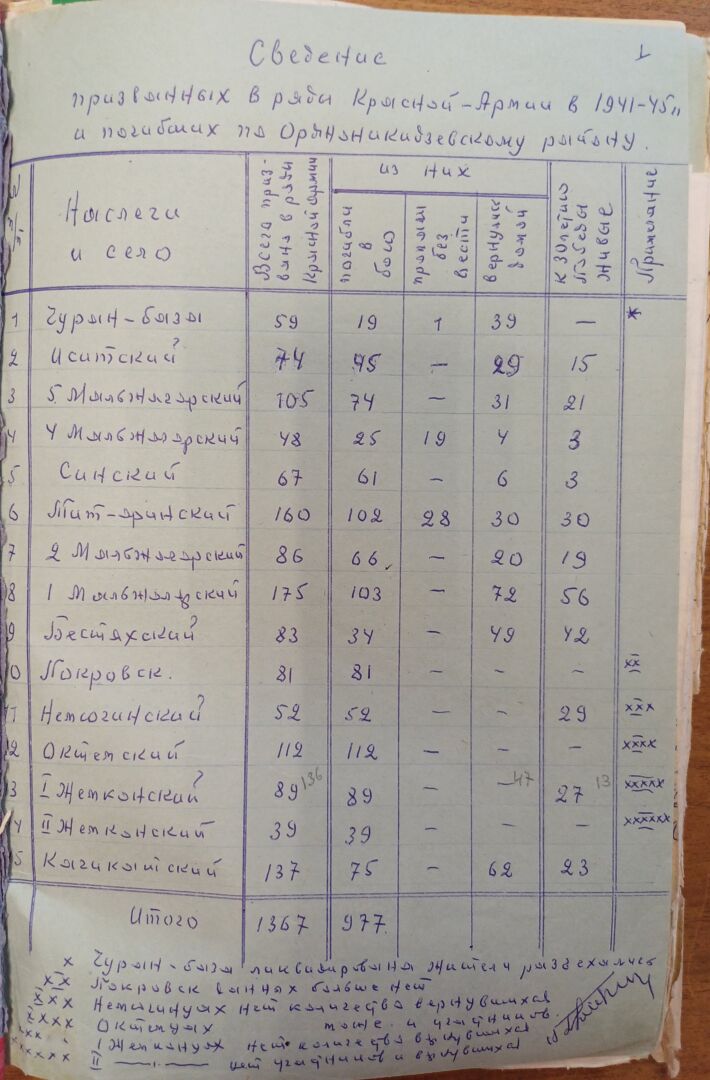 1
Сведение
призванных в ряды Красной-Армии в 1941-45гг
и погибших по Орджоникидзевскому району.
Наслеги и село | Всего призвано в ряды Красной армии | из них | погибли в бою | пропали без вести | вернулись домой | к 30летию Победы живые | Примечание
1 Чуран-база 59 19 1 39 — *
2 Иситский 74 45 — 29 15
3 5 Мальжагарский 105 74 — 31 21
4 4 Мальжагарский 48 25 19 4 3
5 Синский 67 61 — 6 3
6 Тит-аринский 160 102 28 30 30
7 2 Мальжагарский 86 66 — 20 19
8 1 Мальжагарский 175 103 — 72 56
9 Бестяхский 83 34 — 49 42
0 Покровск. 81 81 — — — xx
11 Немюгинский 52 52 — — 29 xxx
2 Октемский 112 112 — — — xxxx
3 I Жемконский 89 136 89 — — 47 27 13 xxxxx
4 II Жемконский 39 39 — — — xxxxxx
5 Качикатский 137 75 — 62 23
Итого 1367 977
x Чуран-база ликвидирована жители разъехались
xx Покровск данных больше нет
xxx Немюгинцах нет количества вернувшихся
xxxx Октемцах тоже и участников
I Жемконцах нет количества вернувшихся
II —"— нет участников и вернувшихся